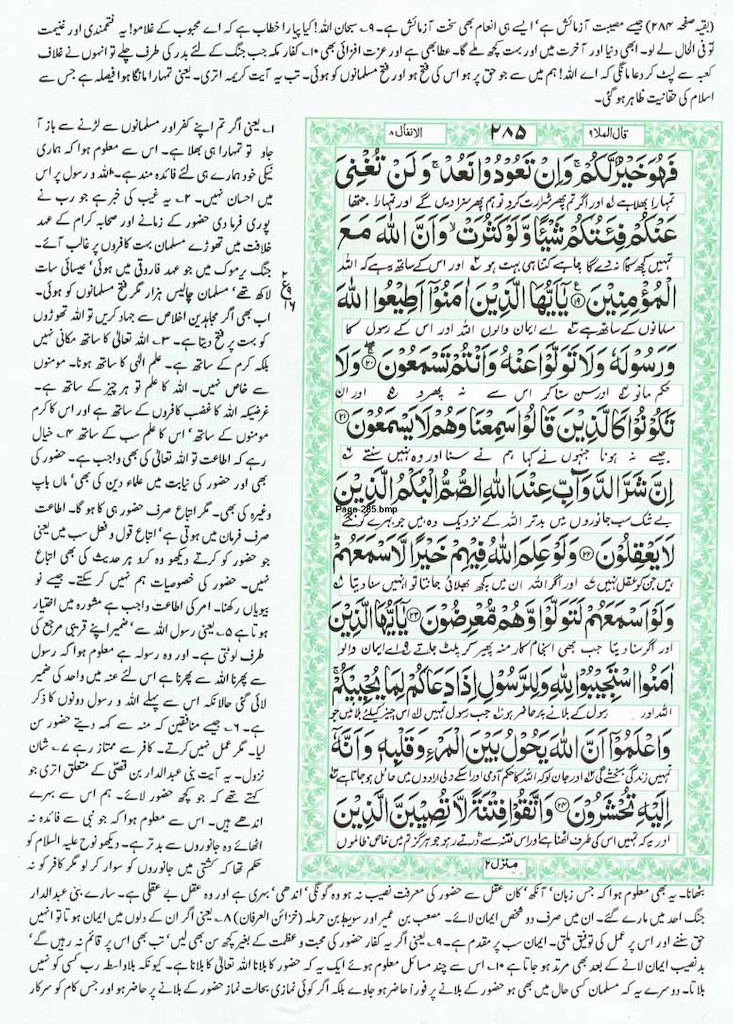 (بقیہ صفحہ ۲۸۴) جیسے مصیبت آزمائش ہے' ایسے ہی انعام بھی سخت آزمائش ہے۔ ۹؎ سبحان اللہ! کیا پیارا خطاب ہے کہ اے محبوب کے غلامو! یہ فتحمندی اور غنیمت
تو فی الحال لے لو۔ ابھی دنیا اور آخرت میں اور بہت کچھ ملے گا۔ عطا بھی ہے اور عزت افزائی بھی ۱۰؎ کفار مکہ جب جنگ کے لئے بدر کی طرف چلے تو انہوں نے غلاف
کعبہ سے لپٹ کر دعا مانگی کہ اے اللہ! ہم میں سے جو حق پر ہو اس کی فتح ہو اور فتح مسلمانوں کو ہوئی۔ تب یہ آیت کریمہ اتری۔ یعنی تمہارا مانگا ہوا فیصلہ ہے جس سے
اسلام کی حقانیت ظاہر ہو گئی۔
قال الملا۹
۲۸۵
الانفال ۸
فَهُوَ خَيْرٌ لَّكُمْ ۚ وَاِنْ تَعُوْدُوْا نَعُدْ ۚ وَلَنْ تُغْنِيَ
تمہارا بھلا ہے اور اگر تم پھر شرارت کرو تو ہم پھر سزا دیں گے اور تمہارا جتھا
عَنْكُمْ فِئَتُكُمْ شَيْئًا وَّلَوْ كَثُرَتْ ۙ وَاَنَّ اللّٰهَ مَعَ
تمہیں کچھ کام نہ دے گا چاہے کتنا ہی بہت ہو اور اس کے ساتھ یہ ہے کہ اللہ
الْمُؤْمِنِيْنَ ۝۱۹ يٰۤاَيُّهَا الَّذِيْنَ اٰمَنُوْۤا اَطِيْعُوا اللّٰهَ
مسلمانوں کے ساتھ ہے اے ایمان والوں اللہ اور اس کے رسول کا
وَرَسُوْلَهٗ وَلَا تَوَلَّوْا عَنْهُ وَاَنْتُمْ تَسْمَعُوْنَ ۝۲۰ وَلَا
حکم مانو اور سن سنا کر اس سے نہ پھرو اور ان
تَكُوْنُوْا كَالَّذِيْنَ قَالُوْا سَمِعْنَا وَهُمْ لَا يَسْمَعُوْنَ ۝۲۱
جیسے نہ ہونا جنہوں نے کہا ہم نے سنا اور وہ نہیں سنتے
اِنَّ شَرَّ الدَّوَآبِّ عِنْدَ اللّٰهِ الصُّمُّ الْبُكْمُ الَّذِيْنَ
Page-285.bmp
بے شک سب جانوروں میں بدتر اللہ کے نزدیک وہ ہیں جو بہرے گونگے
لَا يَعْقِلُوْنَ ۝۲۲ وَلَوْ عَلِمَ اللّٰهُ فِيْهِمْ خَيْرًا لَّاَسْمَعَهُمْ ؕ
ہیں جن کو عقل نہیں اور اگر اللہ ان میں کچھ بھلائی جانتا تو انہیں سنا دیتا
وَلَوْ اَسْمَعَهُمْ لَتَوَلَّوْا وَّهُمْ مُّعْرِضُوْنَ ۝۲۳ يٰۤاَيُّهَا الَّذِيْنَ
اور اگر سنا دیتا جب بھی انجام کار منہ پھیر کر پلٹ جاتے اے ایمان والو
اٰمَنُوا اسْتَجِيْبُوْا لِلّٰهِ وَلِلرَّسُوْلِ اِذَا دَعَاكُمْ لِمَا يُحْيِيْكُمْ ۚ
اللہ اور رسول کے بلانے پر حاضر ہو جب رسول تمہیں اس چیز کیلئے بلائیں جو
وَاعْلَمُوْۤا اَنَّ اللّٰهَ يَحُوْلُ بَيْنَ الْمَرْءِ وَقَلْبِهٖ وَاَنَّهٗۤ
تمہیں زندگی بخشے گی اور جان لو کہ اللہ کا حکم آدمی اور اسکے دلی ارادوں میں حائل ہو جاتا ہے
اِلَيْهِ تُحْشَرُوْنَ ۝۲۴ وَاتَّقُوْا فِتْنَةً لَّا تُصِيْبَنَّ الَّذِيْنَ
اور یہ کہ تمہیں اس کی طرف اٹھنا ہے اور اس فتنہ سے ڈرتے رہو جو ہرگز تم میں خاص ظالموں
منزل ۲
۱؎ یعنی اگر تم اپنے کفر اور مسلمانوں سے لڑنے سے باز آ
جاؤ تو تمہارا ہی بھلا ہے۔ اس سے معلوم ہوا کہ ہماری
نیکی خود ہمارے ہی لئے فائدہ مند ہے۔ اللہ و رسول پر اس
میں احسان نہیں۔ ۲؎ یہ غیب کی خبر ہے جو رب نے
پوری فرما دی حضور کے زمانے اور صحابہ کرام کے عہد
خلافت میں تھوڑے مسلمان بہت کافروں پر غالب آئے۔
جنگ یرموک میں جو عہد فاروقی میں ہوئی' عیسائی سات
لاکھ تھے' مسلمان چالیس ہزار مگر فتح مسلمانوں کو ہوئی۔
اب بھی اگر مجاہدین اخلاص سے جہاد کریں تو اللہ تھوڑوں
کو بہت پر فتح دیتا ہے۔ ۳؎ اللہ تعالیٰ کا ساتھ مکانی نہیں
بلکہ کرم کے ساتھ ہے۔ علم الٰہی کا ساتھ ہونا۔ مومنوں
سے خاص نہیں۔ اللہ کا علم تو ہر چیز کے ساتھ ہے۔
غرضیکہ اللہ کا غضب کافروں کے ساتھ ہے اور اس کا کرم
مومنوں کے ساتھ' اس کا علم سب کے ساتھ ۴؎ خیال
رہے کہ اطاعت تو اللہ تعالیٰ کی بھی واجب ہے۔ حضور کی
بھی اور حضور کی نیابت میں علماء دین کی بھی' ماں باپ
وغیرہ کی بھی۔ مگر اتباع صرف حضور ہی کا ہو گا۔ اطاعت
صرف فرمان میں ہوتی ہے' اتباع قول و فعل سب میں یعنی
جو حضور کو کرتے دیکھو وہ کرو ہر حدیث کی بھی اتباع
نہیں۔ حضور کی خصوصیات ہم نہیں کر سکتے۔ جیسے نو
بیویاں رکھنا۔ امر کی اطاعت واجب ہے مشورہ میں اختیار
ہوتا ہے ۵؎ یعنی رسول اللہ سے' ضمیر اپنے قریبی مرجع کی
طرف لوٹتی ہے۔ اور وہ رسولہ ہے معلوم ہوا کہ رسول
سے پھرنا اللہ سے پھرنا ہے اس لئے عنہ میں واحد کی ضمیر
لائی گئی حالانکہ اس سے پہلے اللہ و رسول دونوں کا ذکر
ہے۔ ۶؎ جیسے منافقین کہ منہ سے کہہ دیتے حضور سن
لیا۔ مگر عمل نہیں کرتے۔ کافر سے ممتاز رہے ۷؎ شان
نزول۔ یہ آیت بنی عبدالدار بن قصی کے متعلق اتری جو
کہتے تھے کہ جو کچھ حضور لائے۔ ہم اس سے بہرے
اندھے ہیں۔ اس سے معلوم ہوا کہ جو نبی سے فائدہ نہ
اٹھائے وہ جانوروں سے بدتر ہے۔ دیکھو نوح علیہ السلام کو
حکم تھا کہ کشتی میں جانوروں کو سوار کر لو مگر کافر کو نہ
بٹھانا۔ یہ بھی معلوم ہوا کہ جس زبان' آنکھ' کان عقل سے حضور کی معرفت نصیب نہ ہو وہ گونگی' اندھی' بہری ہے اور وہ عقل بے عقلی ہے۔ سارے بنی عبدالدار
جنگ احد میں مارے گئے۔ ان میں صرف دو شخص ایمان لائے۔ مصعب بن عمیر اور سویبط بن حرملہ (خزائن العرفان) ۸؎ یعنی اگر ان کے دلوں میں ایمان ہوتا تو انہیں
حق سننے اور اس پر عمل کی توفیق ملتی۔ ایمان سب پر مقدم ہے۔ ۹؎ یعنی اگر یہ کفار حضور کی محبت و عظمت کے بغیر کچھ سن بھی لیں' تب بھی اس پر قائم نہ رہیں گے'
بدنصیب ایمان لانے کے بعد بھی مرتد ہو جاتا ہے ۱۰؎ اس سے چند مسائل معلوم ہوئے ایک یہ کہ حضور کا بلانا اللہ تعالیٰ کا بلانا ہے۔ کیونکہ بلاواسطہ رب کسی کو نہیں
بلاتا۔ دوسرے یہ کہ مسلمان کسی حال میں بھی ہو حضور کے بلانے پر فوراً حاضر ہو جاوے بلکہ اگر کوئی نمازی بحالت نماز حضور کے بلانے پر حاضر ہو اور جس کام کو سرکار